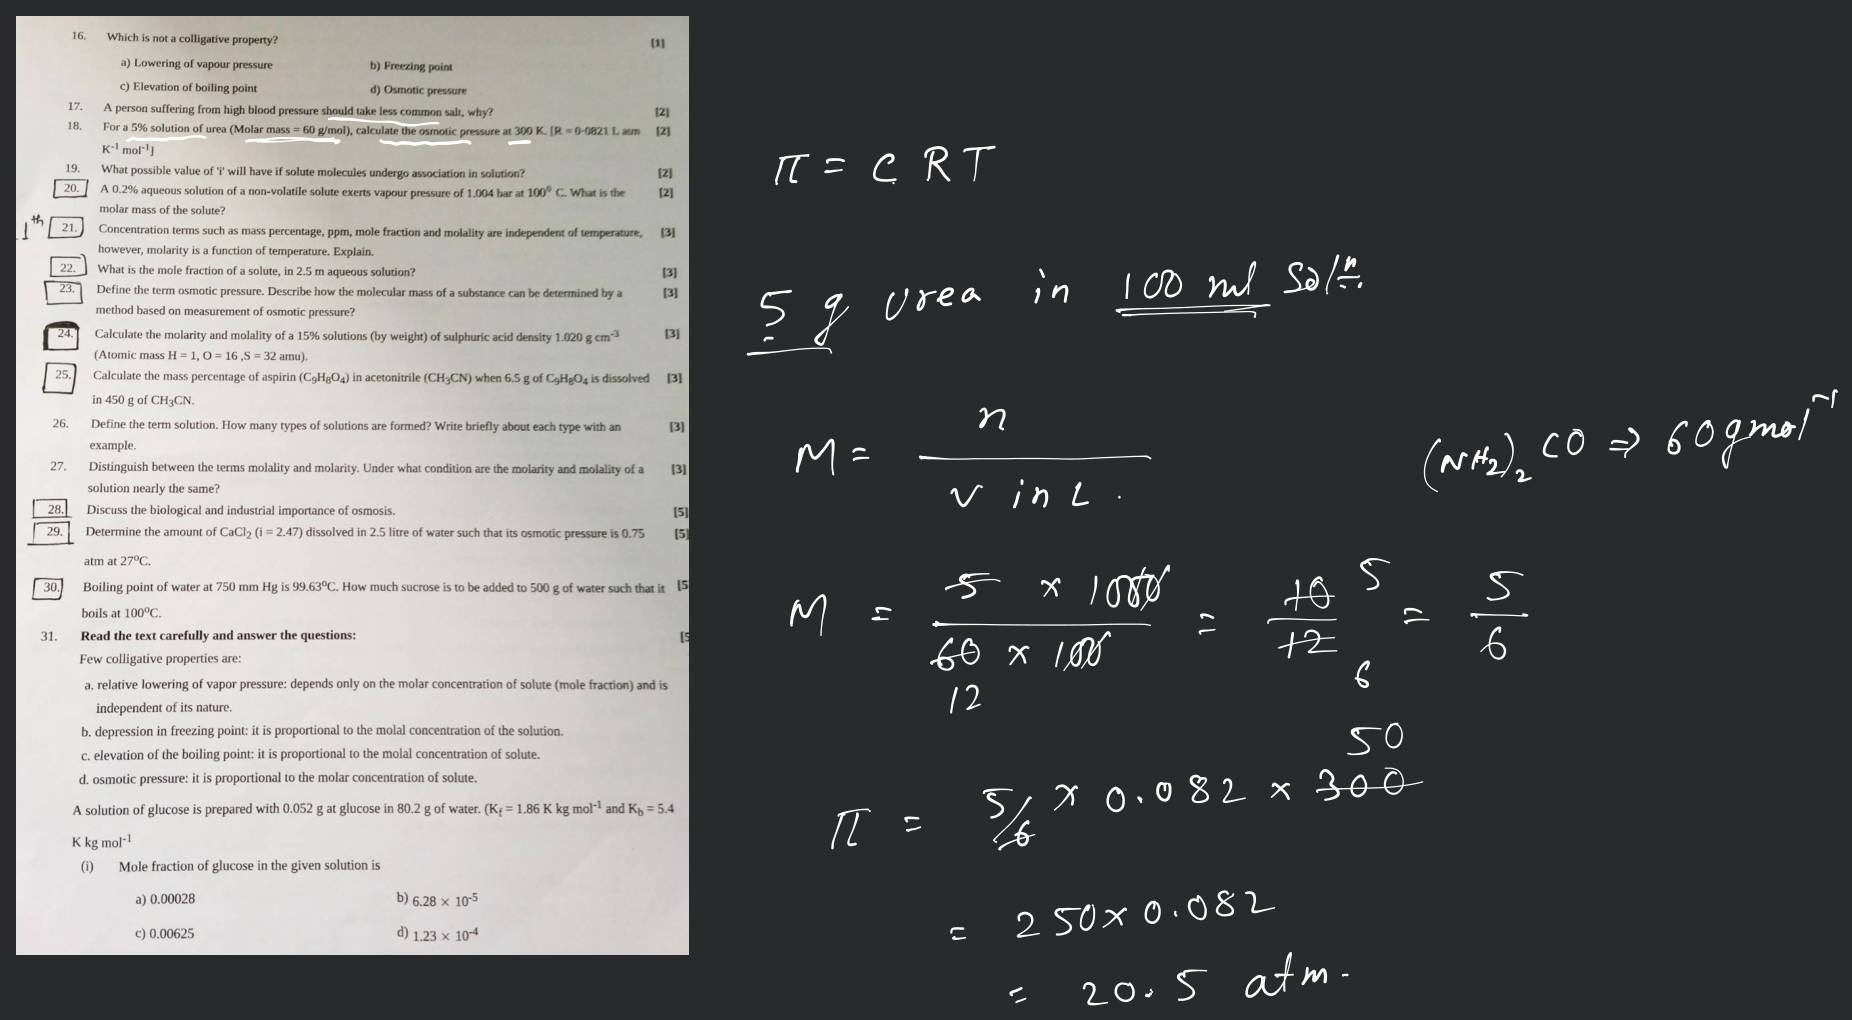 16. Which is not a colligative property? [1]
a) Lowering of vapour pressure b) Freezing point
c) Elevation of boiling point d) Osmotic pressure
17. A person suffering from high blood pressure should take less common salt, why? [2]
18. For a 5% solution of urea (Molar mass = 60 g/mol), calculate the osmotic pressure at 300 K. [R = 0-0821 L atm [2]
K⁻¹ mol⁻¹]
19. What possible value of 'i' will have if solute molecules undergo association in solution? [2]
20. A 0.2% aqueous solution of a non-volatile solute exerts vapour pressure of 1.004 bar at 100⁰ C. What is the [2]
molar mass of the solute?
1th 21. Concentration terms such as mass percentage, ppm, mole fraction and molality are independent of temperature, [3]
however, molarity is a function of temperature. Explain.
22. What is the mole fraction of a solute, in 2.5 m aqueous solution? [3]
23. Define the term osmotic pressure. Describe how the molecular mass of a substance can be determined by a [3]
method based on measurement of osmotic pressure?
24. Calculate the molarity and molality of a 15% solutions (by weight) of sulphuric acid density 1.020 g cm⁻³ [3]
(Atomic mass H = 1, O = 16 ,S = 32 amu).
25. Calculate the mass percentage of aspirin (C₉H₈O₄) in acetonitrile (CH₃CN) when 6.5 g of C₉H₈O₄ is dissolved [3]
in 450 g of CH₃CN.
26. Define the term solution. How many types of solutions are formed? Write briefly about each type with an [3]
example.
27. Distinguish between the terms molality and molarity. Under what condition are the molarity and molality of a [3]
solution nearly the same?
28. Discuss the biological and industrial importance of osmosis. [5]
29. Determine the amount of CaCl₂ (i = 2.47) dissolved in 2.5 litre of water such that its osmotic pressure is 0.75 [5]
atm at 27⁰C.
30. Boiling point of water at 750 mm Hg is 99.63⁰C. How much sucrose is to be added to 500 g of water such that it [5
boils at 100⁰C.
31. Read the text carefully and answer the questions: [5
Few colligative properties are:
a. relative lowering of vapor pressure: depends only on the molar concentration of solute (mole fraction) and is
independent of its nature.
b. depression in freezing point: it is proportional to the molal concentration of the solution.
c. elevation of the boiling point: it is proportional to the molal concentration of solute.
d. osmotic pressure: it is proportional to the molar concentration of solute.
A solution of glucose is prepared with 0.052 g at glucose in 80.2 g of water. (K_f = 1.86 K kg mol⁻¹ and K_b = 5.4
K kg mol⁻¹
(i) Mole fraction of glucose in the given solution is
a) 0.00028 b) 6.28 × 10⁻⁵
c) 0.00625 d) 1.23 × 10⁻⁴
π = C R T
5 g urea in 100 ml Solⁿ.
n
M = ——
v in L.
(NH₂)₂ CO ⇒ 60 g mol⁻¹
5 × 1000 10 5 5
M = —— = —— = ——
60 × 100 12 6 6
12
50
π = 5/6 × 0.082 × 300
= 250 × 0.082
= 20.5 atm.